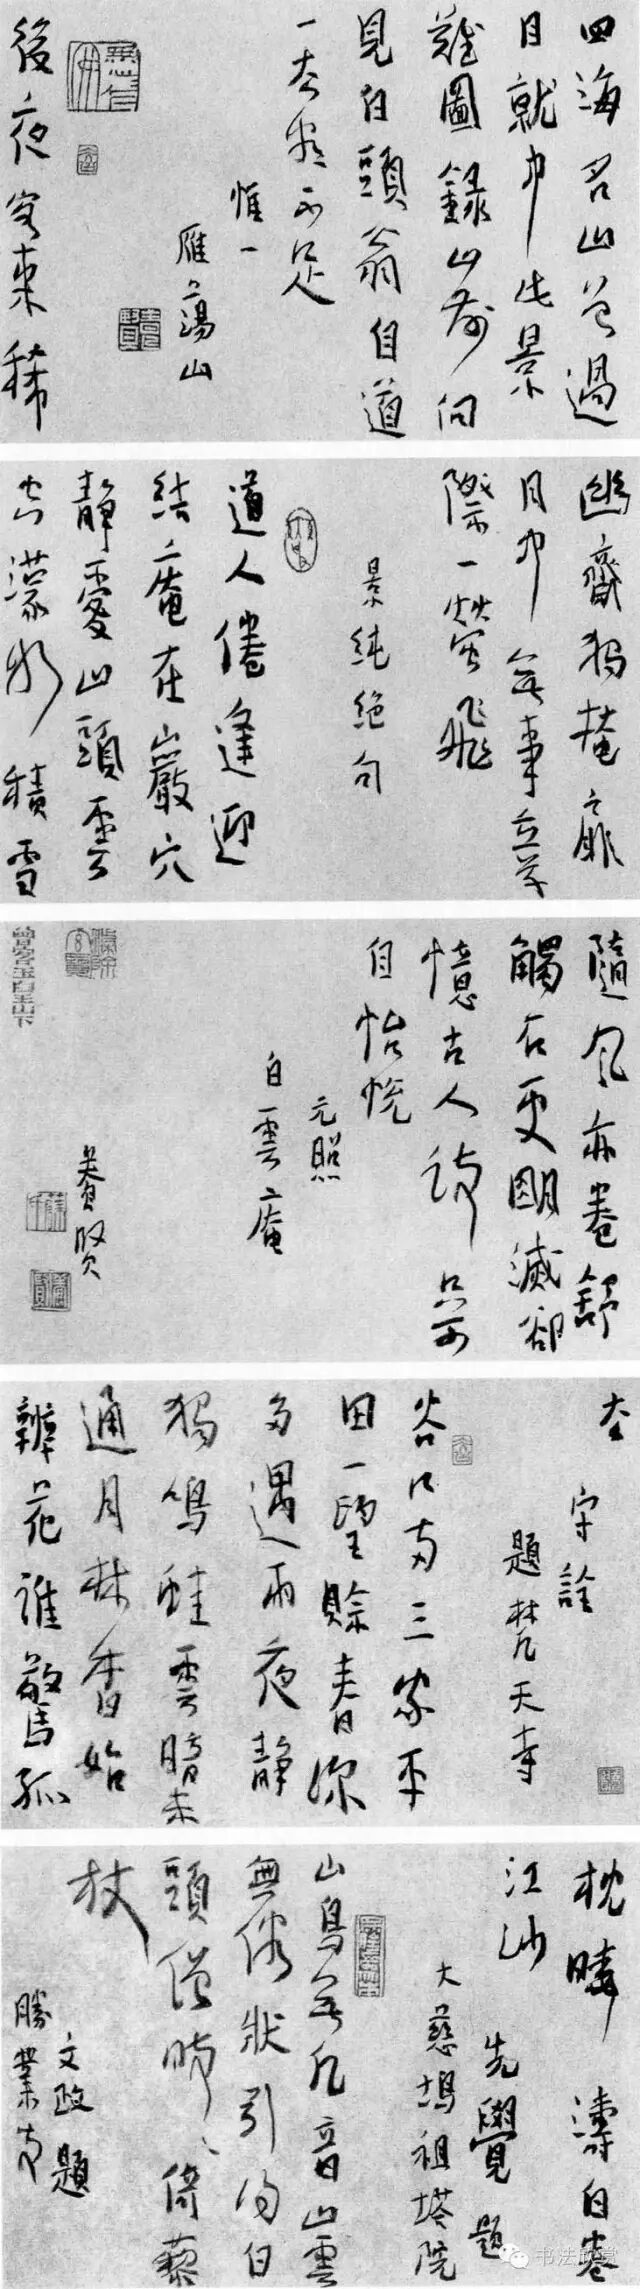 四海名山曾過
目就中此景
難圖錄山前向
見白頭翁自道
一生看不足
惟一
雁蕩山
後夜客來稀
幽齋獨掩扉
月中無事立草
際一螢飛
景純絕句
道人倦逢迎
結庵在巖穴
靜愛山頭雲
空濛積雪
隨風亦卷舒
觸石更明滅卻
憶古人詩只可
自怡悅
元照
白雲庵
養賢
守詮
題梵天寺
谷口兩三家平
田一望賒春深
多遇雨夜靜
獨鳴蛙雲暗未
通月林香始
辨花誰驚孤
枕曉濤白卷
江沙
先覺題
大慈塢祖塔院
山鳥無凡音山雲
無俗狀引得白
頭僧時時倚藜
杖
文政題
勝業寺
书法欣赏